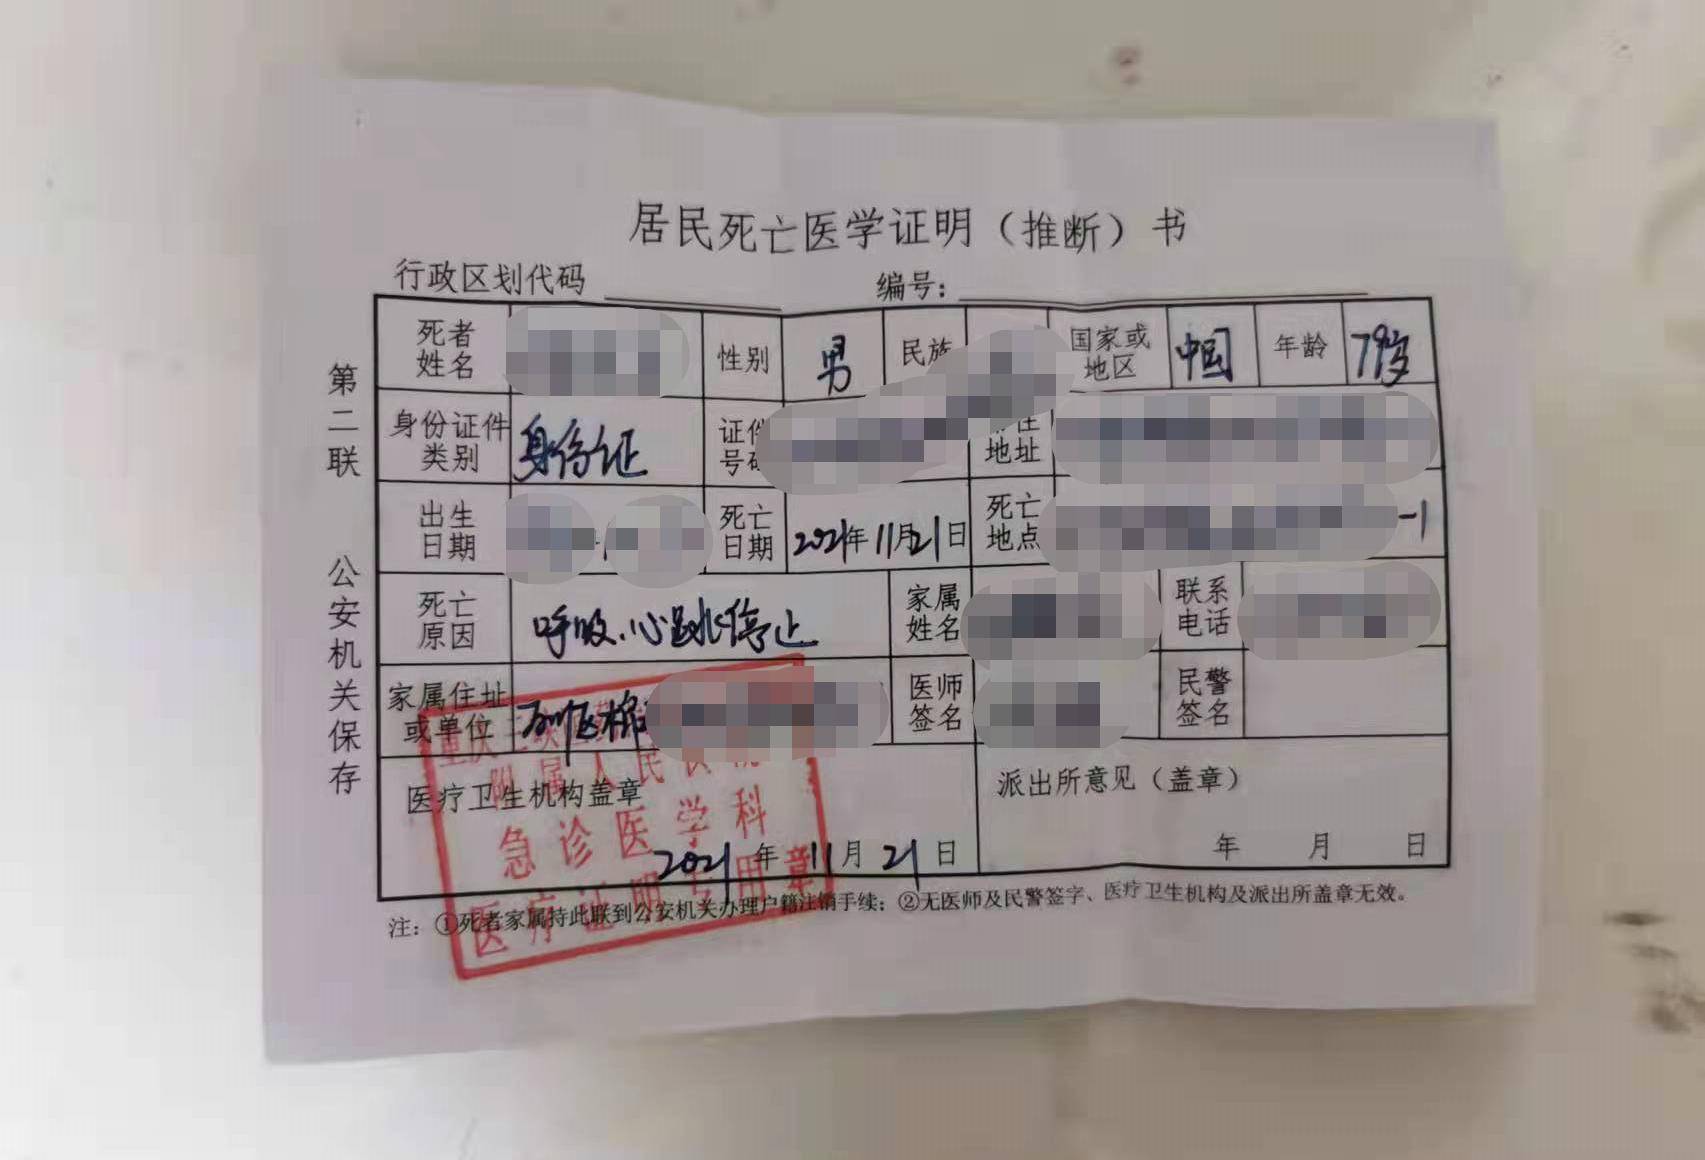 居民死亡医学证明（推断）书
行政区划代码 编号：
第二联 公安机关保存
死者姓名 性别 男 民族 国家或地区 中国 年龄 79岁
身份证件类别 身份证 证件号码 住地址
出生日期 死亡日期 2021年11月21日 死亡地点 -1
死亡原因 呼吸、心跳停止 家属姓名 联系电话
家属住址或单位 万州区 医师签名 民警签名
医疗卫生机构盖章 派出所意见（盖章）
2021年11月21日 年 月 日
附属人民医院
急诊医学科
医疗证明专用章
注：①死者家属持此联到公安机关办理户籍注销手续；②无医师及民警签字、医疗卫生机构及派出所盖章无效。